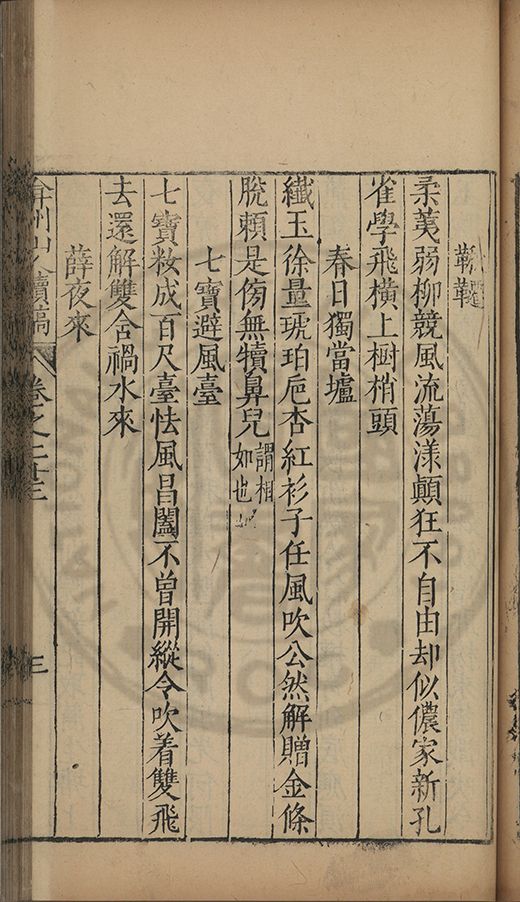 鞦韆
柔荑弱柳競風流蕩漾顛狂不自由却似儂家新孔
雀學飛橫上樹梢頭
春日獨當壚
纖玉徐量琥珀卮杏紅衫子任風吹公然解贈金條
脫賴是傍無犢鼻兒謂相如也
七寶避風臺
七寶粧成百尺臺怯風昌闔不曾開縱令吹着雙飛
去還解雙含禍水來
薛夜來
弇州山人續稿
卷之二十三
三